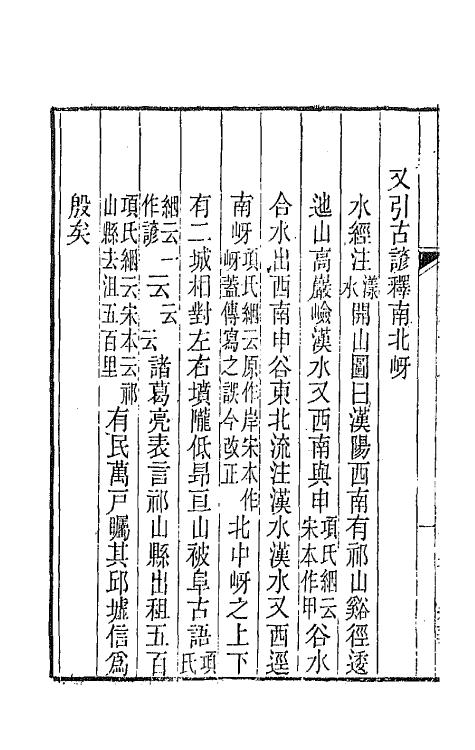 又引古諺釋南北岈
水經注漾水開山圖曰漢陽西南有祁山谿徑逶
迆山高巖嶮漢水又西南與申項氏絪云宋本作甲谷水
合水出西南申谷東北流注漢水漢水又西逕
南岈項氏絪云原作岸宋本作岈蓋傳寫之誤今改正北中岈之上下
有二城相對左右墳隴低昂亘山被阜古語項氏
絪云一作諺云云諸葛亮表言祁山縣出租五百
項氏絪云宋本云祁山縣去沮五百里有民萬戶矚其邱墟信爲
殷矣